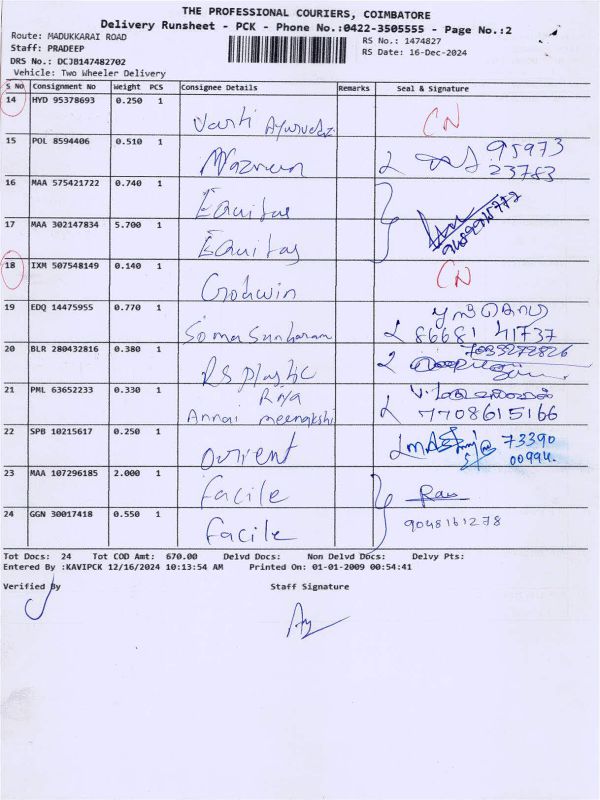 THE PROFESSIONAL COURIERS, COIMBATORE
Delivery Runsheet - PCK - Phone No.:0422-3505555 - Page No.:2
Route: MADUKKARAI ROAD
RS No.: 1474827
Staff: PRADEEP
RS Date: 16-Dec-2024
DRS No.: DCJB147482702
Vehicle: Two Wheeler Delivery
S No Consignment No Weight PCS Consignee Details Remarks Seal & Signature
14 HYD 95378693 0.250 1
CN
15 POL 8594406 0.510 1 Nazreen 95973
23783
16 MAA 575421722 0.740 1 Equitas
17 MAA 302147834 5.700 1 Equitas
18 IXM 507548149 0.140 1 Godwin CN
19 EDQ 14475955 0.770 1 Soma Sundaram 86681 41737
20 BLR 280432816 0.380 1 RS Plastic 7035272826
21 PML 63652233 0.330 1
Annai meenakshi 7708615166
22 SPB 10215617 0.250 1 Orient 73390
00994.
23 MAA 107296185 2.000 1 Facile
24 GGN 30017418 0.550 1 Facile 9048161278
Tot Docs: 24 Tot COD Amt: 670.00 Delvd Docs: Non Delvd Docs: Delvy Pts:
Entered By :KAVIPCK 12/16/2024 10:13:54 AM Printed On: 01-01-2009 00:54:41
Verified By Staff Signature